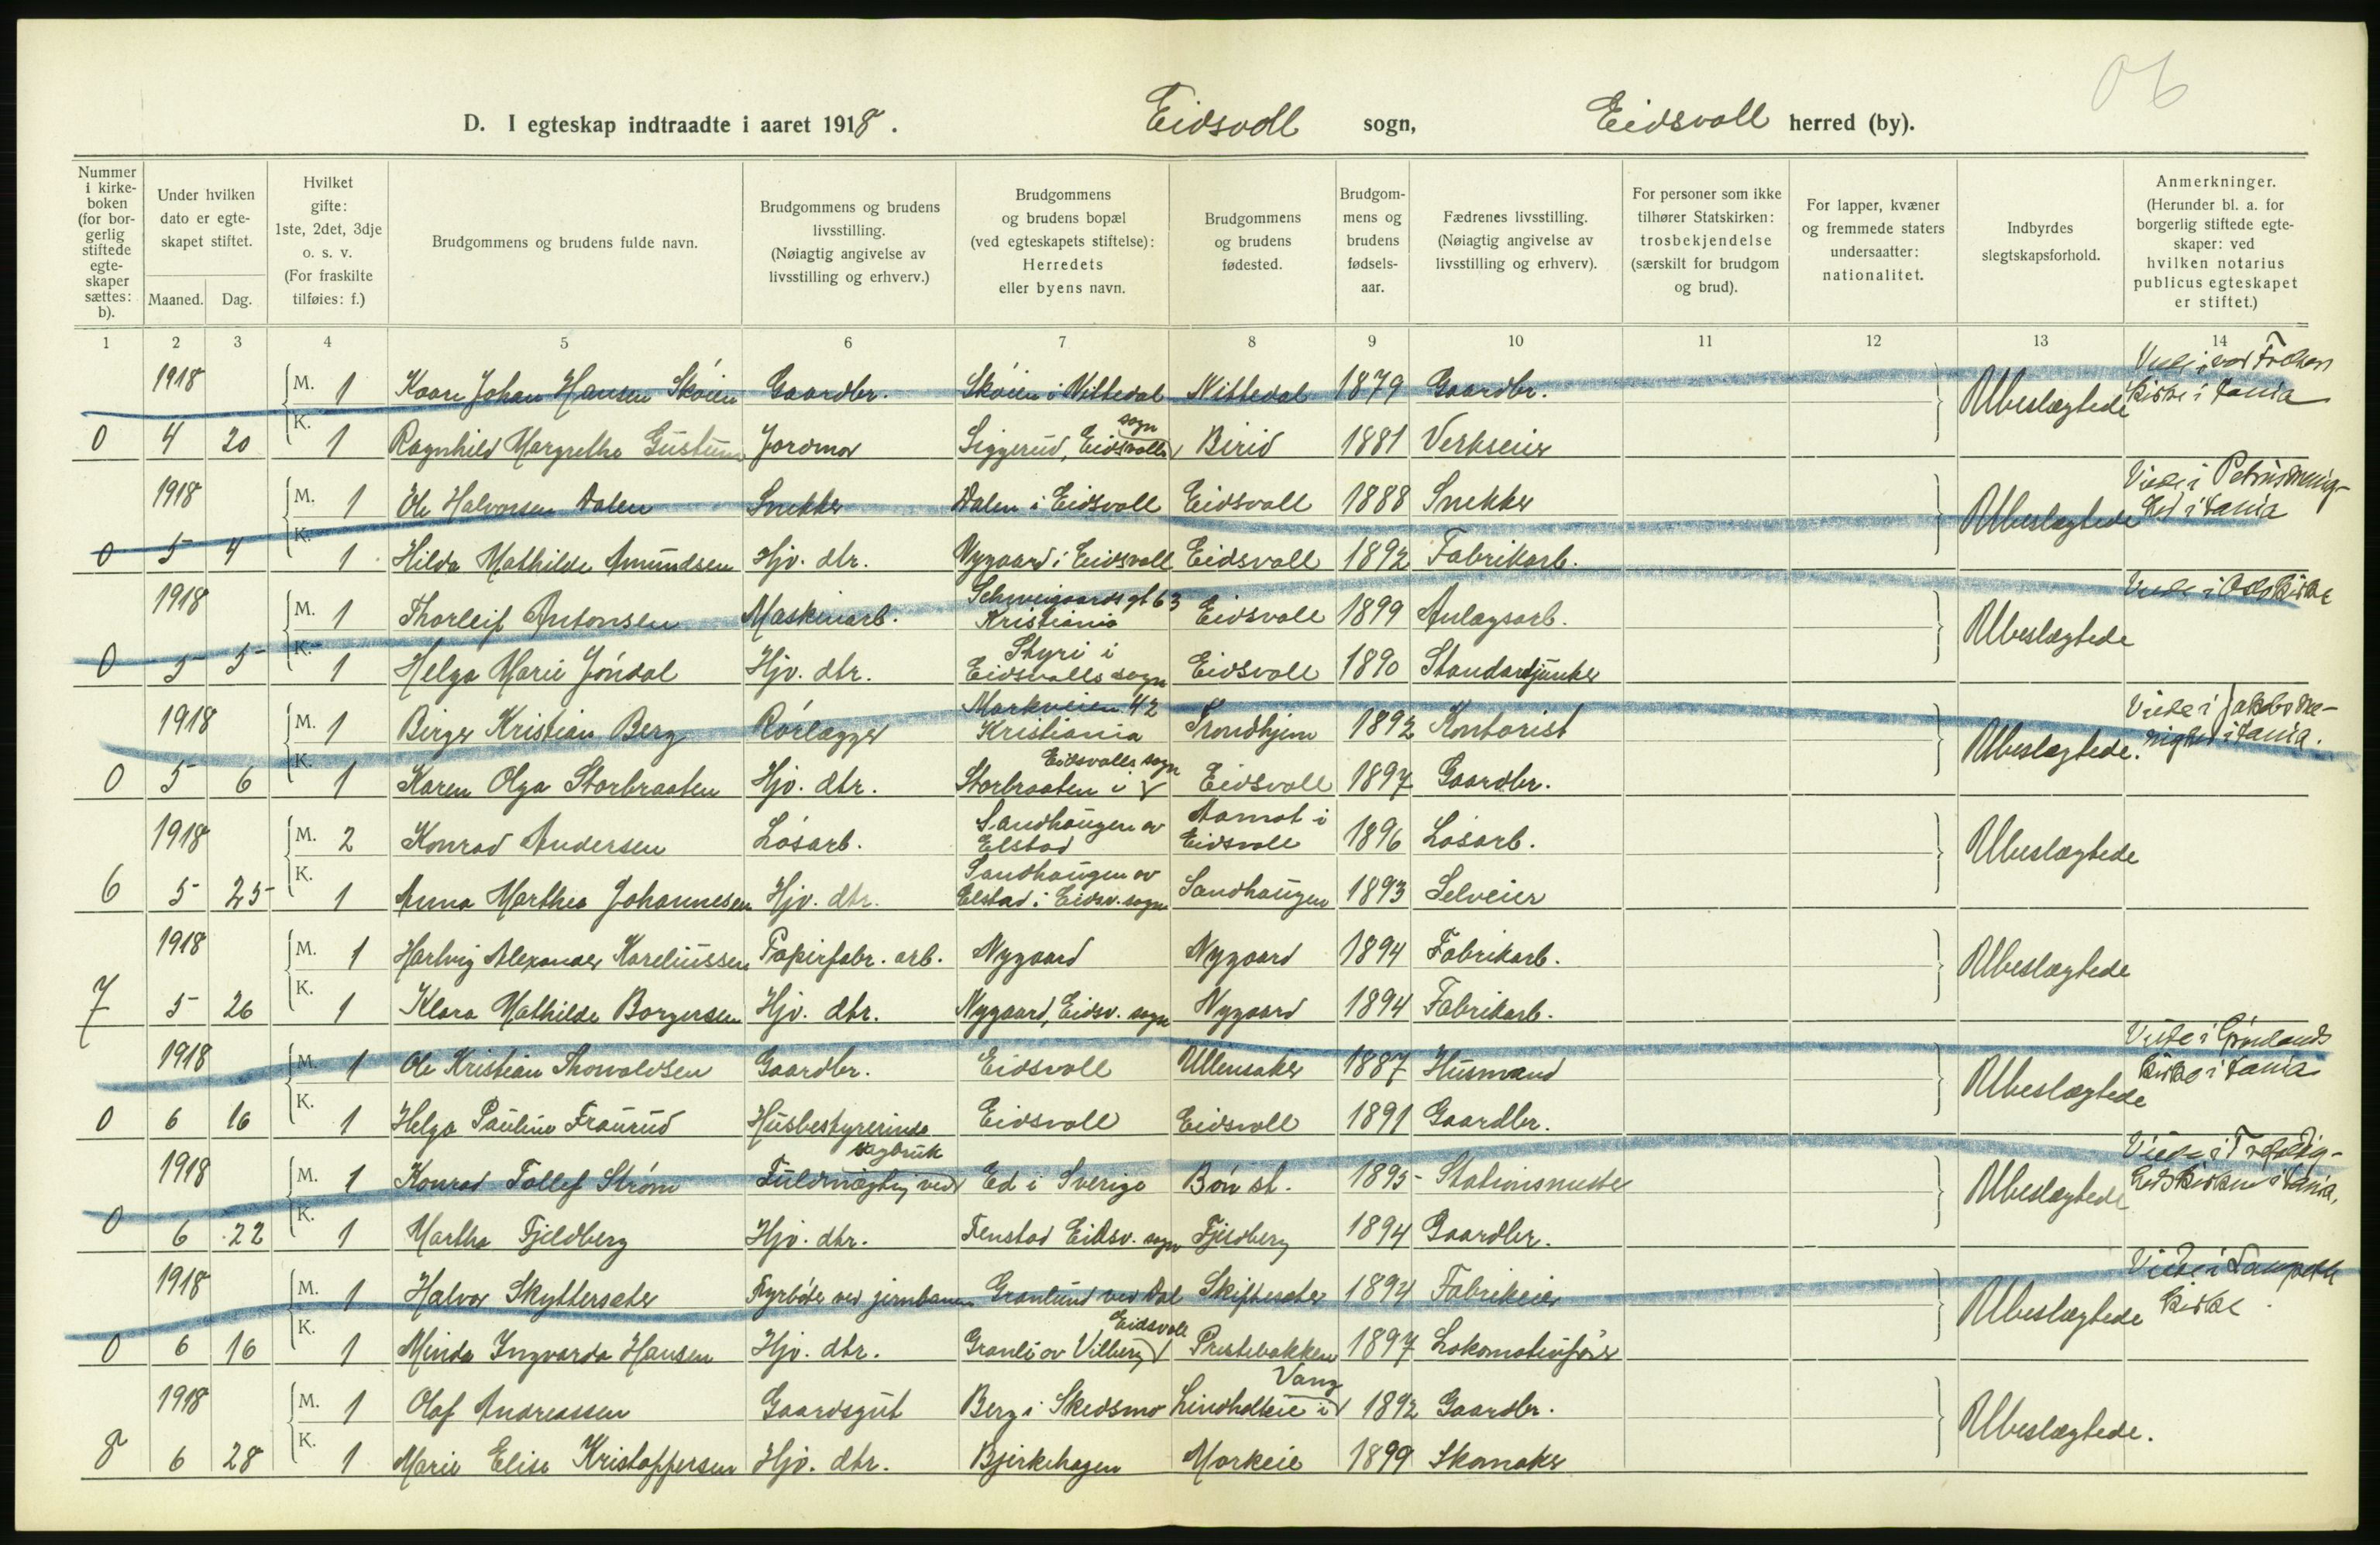 06
D. I egteskap indtraadte i aaret 1918. Eidsvoll sogn, Eidsvoll herred (by).
Nummer i kirke-boken (for bor-gerlig stiftede egte-skaper sættes: b).
Under hvilken dato er egte-skapet stiftet.
Maaned. Dag.
Hvilket gifte: 1ste, 2det, 3dje o. s. v. (For fraskilte tilføies: f.)
Brudgommens og brudens fulde navn.
Brudgommens og brudens livsstilling. (Nøiagtig angivelse av livsstilling og erhverv.)
Brudgommens og brudens bopæl (ved egteskapets stiftelse): Herredets eller byens navn.
Brudgommens og brudens fødested.
Brudgom-mens og brudens fødsels-aar.
Fædrenes livsstilling. (Nøiagtig angivelse av livsstilling og erhverv).
For personer som ikke tilhører Statskirken: trosbekjendelse (særskilt for brudgom og brud).
For lapper, kvæner og fremmede staters undersaatter: nationalitet.
Indbyrdes slegtskapsforhold.
Anmerkninger. (Herunder bl. a. for borgerlig stiftede egte-skaper: ved hvilken notarius publicus egteskapet er stiftet.)
1 2 3 4 5 6 7 8 9 10 11 12 13 14
1918 M. 1 Kaare Johan Hansen Skøien Gaardbr. Skøien i Nittedal Nittedal 1879 Gaardbr. Ubeslægtede Viede i vor Frelsers Kirke i Kania
0 4 20 K. 1 Ragnhild Margrethe Gustum Jordmor Siggerud, Eidsvolls sogn Birid 1881 Verkseier
1918 M. 1 Ole Halvorsen Dalen Snekker Dalen i Eidsvoll Eidsvoll 1888 Snekker Ubeslægtede Viede i Petrus menig-hed i Kania
0 5 4 K. 1 Hilda Mathilde Amundsen Hjv. dtr. Nygaard i Eidsvoll Eidsvoll 1892 Fabrikarb.
1918 M. 1 Thorleif Antonsen Maskinarb. Schweigaards gt 63 Kristiania Eidsvoll 1899 Anlægsarb. Ubeslægtede Viede i Oslo Kirke
0 5 5 K. 1 Helga Marie Jøndal Hjv. dtr. Styri i Eidsvolls sogn Eidsvoll 1890 Standartjunker
1918 M. 1 Birger Kristian Berg Rørlægger Markveien 42 Kristiania Trondhjem 1892 Kontorist Ubeslægtede. Viede i Jakobs me-nighed i Kania.
0 5 6 K. 1 Karen Olga Storbraaten Hjv. dtr. Storbraaten i Eidsvolls sogn Eidsvoll 1897 Gaardbr.
1918 M. 2 Konrad Andersen Løsarb. Sandhaugen av Elstad Aamot i Eidsvoll 1896 Løsarb. Ubeslægtede
6 5 25 K. 1 Anna Marthea Johannesen Hjv. dtr. Sandhaugen av Elstad i Eidsv. sogn Sandhaugen 1893 Selveier
1918 M. 1 Hartvig Alexander Kareliussen Papirfabr. arb. Nygaard Nygaard 1894 Fabrikarb. Ubeslægtede
7 5 26 K. 1 Klara Mathilde Borgersen Hjv. dtr. Nygaard, Eidsv. sogn Nygaard 1894 Fabrikarb.
1918 M. 1 Ole Kristian Thorvaldsen Gaardbr. Eidsvoll Ullensaker 1887 Husmand Ubeslægtede Viede i Grønlands Kirke i Kania
0 6 16 K. 1 Helga Pauline Fraurud Husbestyrerinde Eidsvoll Eidsvoll 1891 Gaardbr.
1918 M. 1 Konrad Tollef Strøm Fuldmægtig ved sagbruk Ed i Sverige Bøn st. 1895 Stationsmester Ubeslægtede Viede i Trefoldig-hedskirken i Kania.
0 6 22 K. 1 Martha Fjeldberg Hjv. dtr. Fenstad Eidsv. sogn Fjeldberg 1894 Gaardbr.
1918 M. 1 Halvor Skyttersæter Fyrbøter ved jernbanen Granlund ved Dal Skiftesæter 1894 Fabrikeier Ubeslægtede Viede i Kirke.
0 6 16 K. 1 Minda Ingvarda Hansen Hjv. dtr. Granli av Vilberg Eidsvoll Prestebakken 1897 Lokomotivfører
1918 M. 1 Olaf Andreassen Gaardsgut Berg i Skedsmo Lindholteie i Vang 1892 Gaardbr. Ubeslægtede.
8 6 28 K. 1 Marie Elise Kristoffersen Hjv. dtr. Bjerkehagen Morkeie 1899 Skomaker